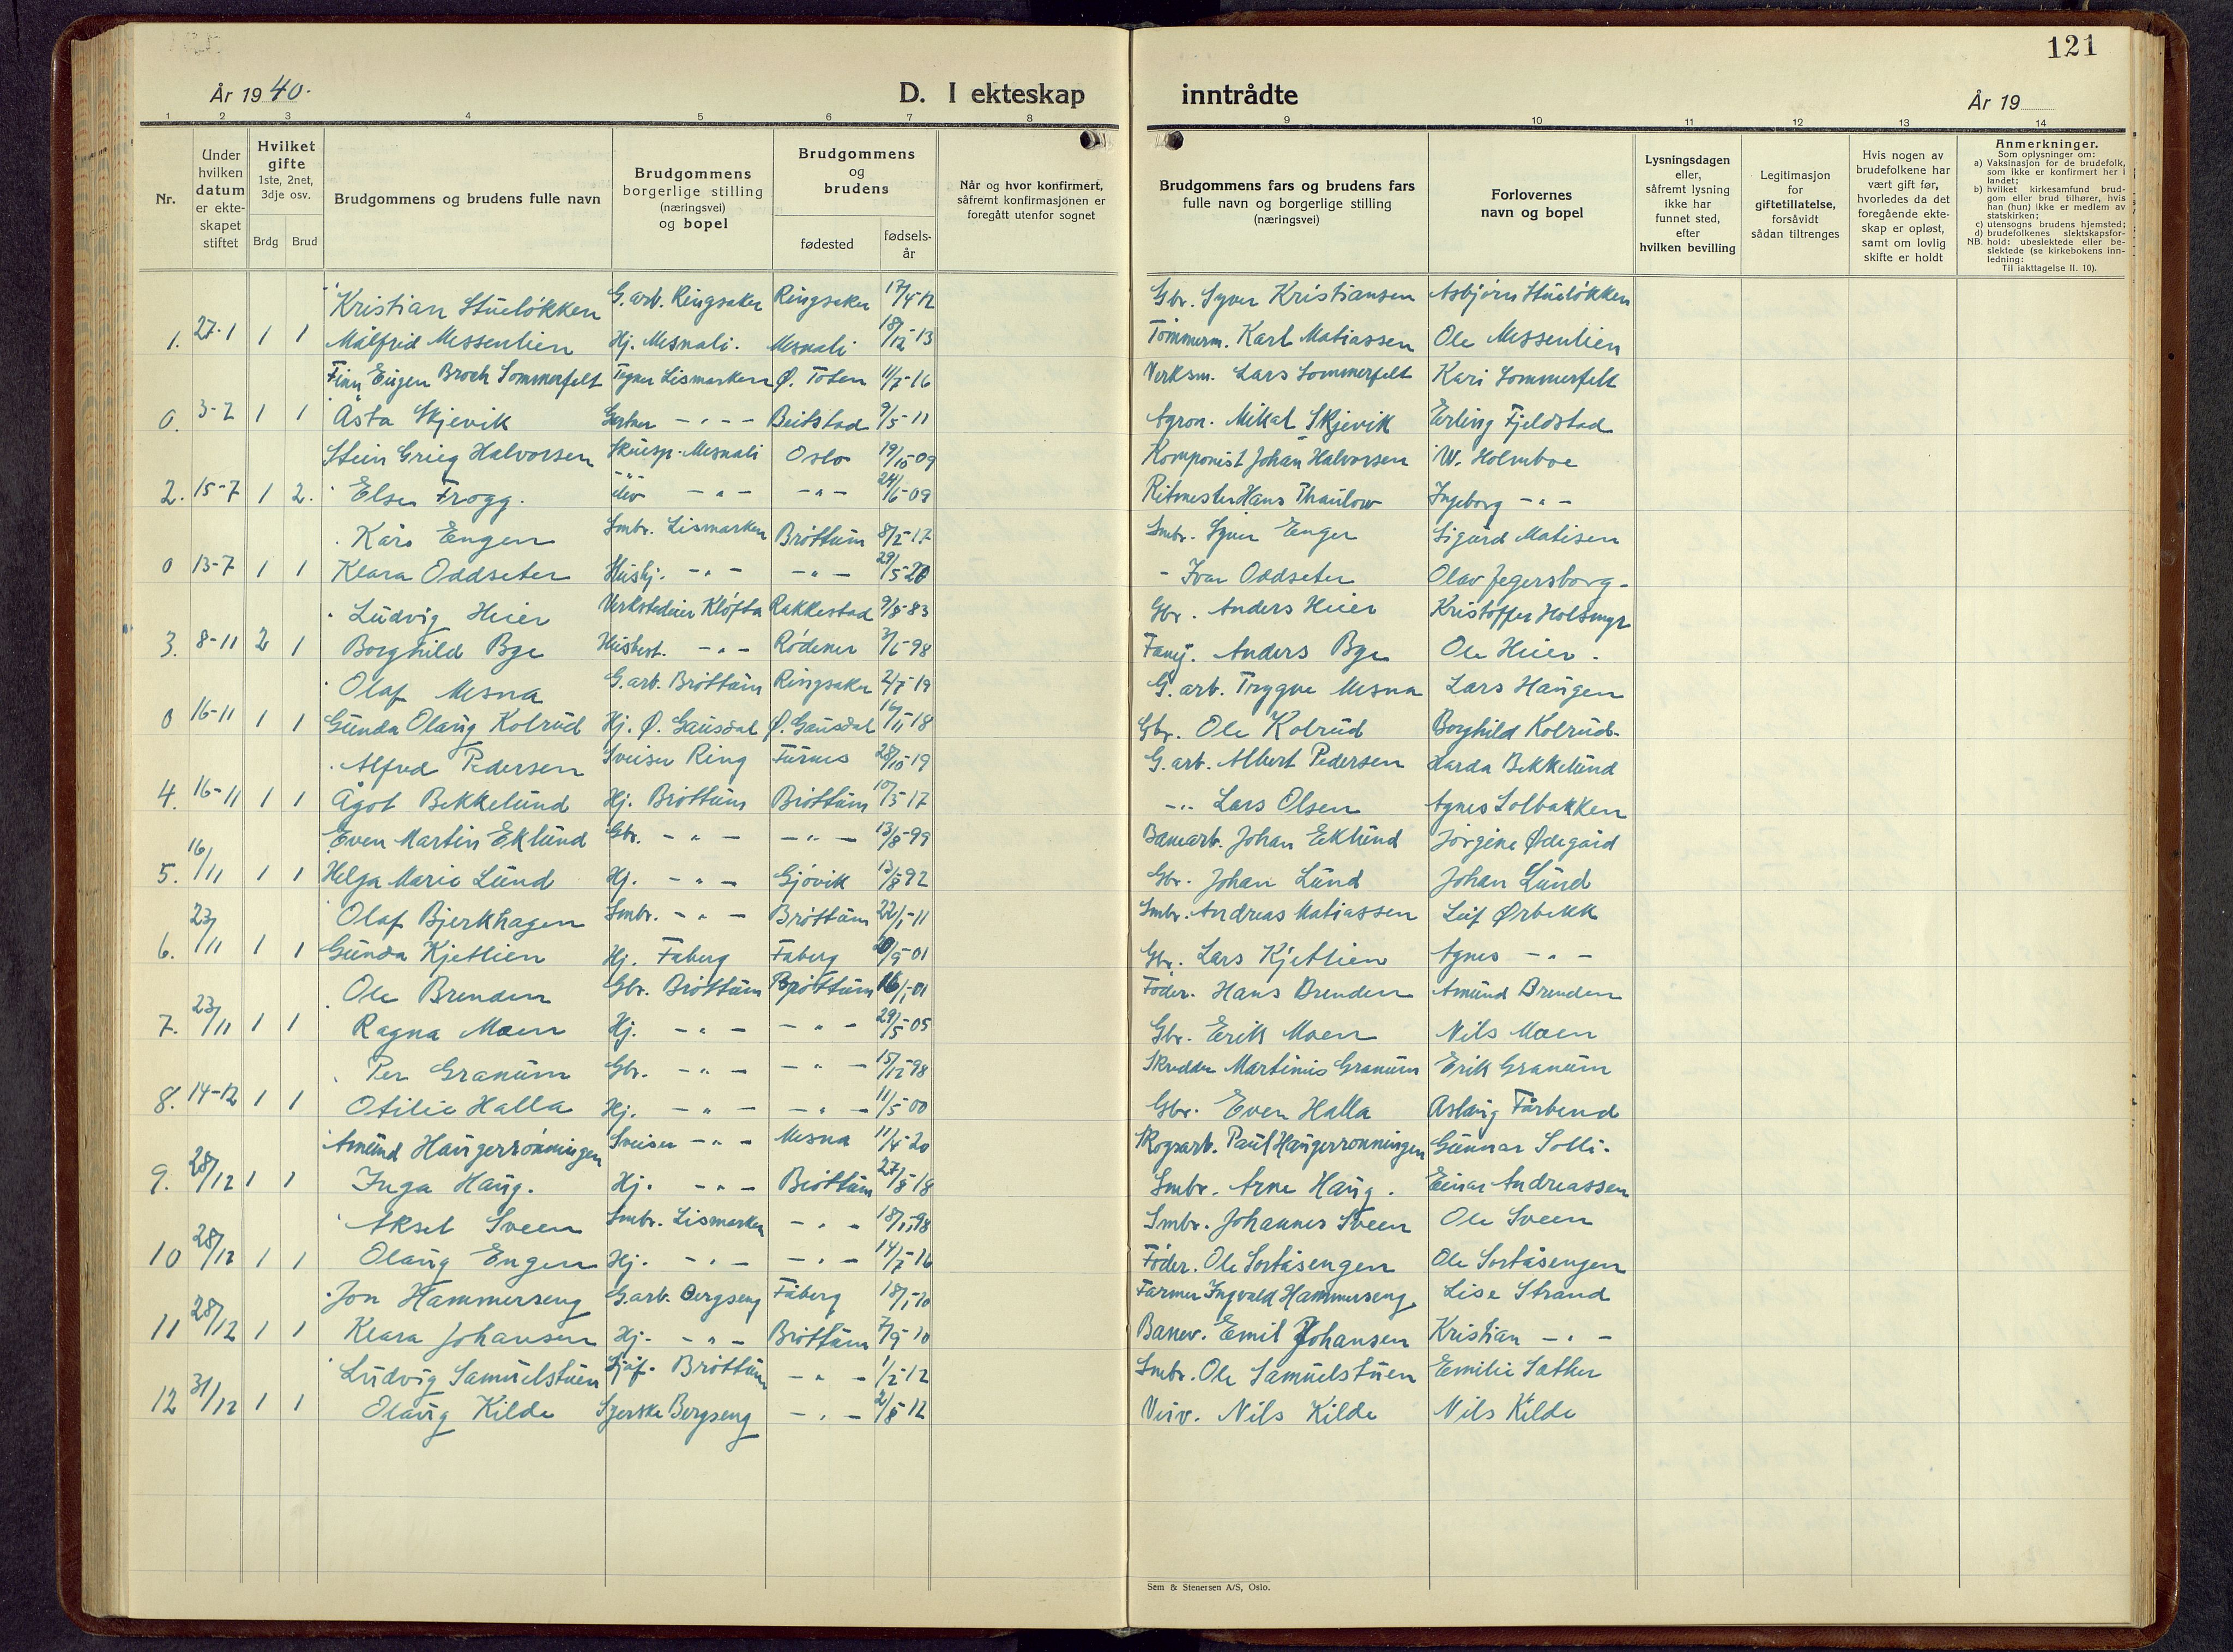 121
År 1940.
D. I ekteskap inntrådte
År 19
1 2 3 4 5 6 7 8 9 10 11 12 13 14
Nr.
Under hvilken datum er ekteskapet stiftet
Hvilket gifte 1ste, 2net, 3dje osv.
Brdg Brud
Brudgommens og brudens fulle navn
Brudgommens borgerlige stilling (næringsvei) og bopel
Brudgommens og brudens
fødested
fødselsår
Når og hvor konfirmert, såfremt konfirmasjonen er foregått utenfor sognet
Brudgommens fars og brudens fars fulle navn og borgerlige stilling (næringsvei)
Forlovernes navn og bopel
Lysningsdagen eller, såfremt lysning ikke har funnet sted, efter hvilken bevilling
Legitimasjon for giftetillatelse, forsåvidt sådan tiltrenges
Hvis nogen av brudefolkene har vært gift før, hvorledes da det foregående ekteskap er opløst, samt om lovlig skifte er holdt
Anmerkninger.
Som oplysninger om:
a) Vaksinasjon for de brudefolk, som ikke er konfirmert her i landet;
b) hvilket kirkesamfund brudgom eller brud tilhører, hvis han (hun) ikke er medlem av statskirken;
c) utensogns brudens hjemsted;
d) brudefolkenes slektskapsforhold: ubeslektede eller beslektede (se kirkebokens innledning:
NB. Til iakttagelse II. 10).
Kristian Stueløkken G. arb. Ringsaker Ringsaker 17/4-12 Gbr. Syver Kristiansen Asbjørn Stueløkken
1. 27-1 1 1 Målfrid Messenlien Hj. Mesnali. Mesnali 18/12-13 Tømmerm. Karl Matiassen Ole Messenlien
Finn Eugen Broch Sommerfelt Tegner Lismarken Ø. Toten 11/7-16 Verksm. Lars Sommerfelt Kari Sommerfelt
0. 3-2 1 1 Åsta Skjevik Gartner - " - Beitstad 9/5-11 Agron. Mikal Skjevik Erling Fjeldstad
Stein Grieg Halvorsen Skuesp. Mesnali Oslo 19/10-09 Komponist Johan Halvorsen W. Holmboe
2. 15-7 1 2. Else Frogg. - " - - " - 24/6-09 Ritmester Hans Thaulow Ingeborg - " -
Kåre Engen Smbr. Lismarken Brøttum 8/2-17 Smbr. Syver Enger Sigurd Matisen
0 13-7 1 1 Klara Oddseter Hushj. - " - - " - 29/5-20 - Ivar Oddseter Olav Jegersborg -
Ludvig Heier Verkstedeier Kløfta Rakkestad 9/8-83 Gbr. Anders Heier Kristoffer Holsmyr
3. 8-11 2 1 Borghild Bye Husbest. - " - Rødenes 3/6-98 Fanej. Anders Bye Ole Heier.
Olaf Mesna G. arb. Brøttum Ringsaker 2/7-19 G. arb. Trygve Mesna Lars Haugen
0 16-11 1 1 Gunda Olaug Kolrud Hj. Ø. Gausdal Ø. Gausdal 16/11-18 Gbr. Ole Kolrud Borghild Kolrud.
Alfred Pedersen Sveiser Ring Furnes 28/10-19 G. arb. Albert Pedersen Harda Bekkelund
4. 16-11 1 1 Ågot Bekkelund Hj. Brøttum Brøttum 10/5-17 - " - Lars Olsen Agnes Solbakken
Even Martin Eklund Gbr. - " - - " - 13/8-99 Banearb. Johan Eklund Jørgine Ødegård
5. 16/11 1 1 Helga Marie Lund Hj. - " - Gjøvik 13/8-92 Gbr. Johan Lund Johan Lund
Olaf Bjerkhagen Smbr. - " - Brøttum 22/1-11 Smbr. Andreas Matiassen Leif Ørbekk
6. 23/11 1 1 Gunda Kjetlien Hj. Fåberg Fåberg 20/9-01 Gbr. Lars Kjetlien Agnes - " -
Ole Brenden Gbr. Brøttum Brøttum 16/1-01 Føder. Hans Brenden Amund Brenden
7. 23/11 1 1 Ragna Moen Hj. - " - - " - 29/5-05 Gbr. Erik Moen Nils Moen
Per Granum Gbr. - " - - " - 15/12-98 Skredder Martinius Granum Erik Granum
8. 14-12 1 1 Otilie Halla Hj. - " - - " - 11/5-00 Gbr. Even Halla Aslaug Furbend
Amund Haugerrønningen Sveiser - " - Mesna 11/4-20 Skogsarb. Paul Haugerrønningen Gunnar Solli.
9. 28/12 1 1 Inga Haug. Hj. - " - Brøttum 27/8-18 Smbr. Arne Haug. Einar Andreassen
Aksel Sveen Smbr. Lismarken - " - 18/11-98 Smbr. Johannes Sveen Ole Sveen
10 28/12 1 1 Olaug Engen Hj. - " - - " - 14/7-16 Føder. Ole Sortåsengen Ole Sortåsengen
Jon Hammerseng G.arb. Bergseng Fåberg 18/1-10 Farmer Ingvald Hammerseng Lise Strand
11 28/12 1 1 Klara Johansen Hj. - " - Brøttum 7/9-10 Banev. Emil Johansen Kristian - " -
Ludvig Samuelstuen Sjåf. Brøttum - " - 1/2-12 Smbr. Ole Samuelstuen Emilie Sather
12 31/12 1 1 Olaug Kilde Syerske Bergseng - " - 2/8-12 Veiv. Nils Kilde Nils Kilde
Sem & Stenersen A/S, Oslo.